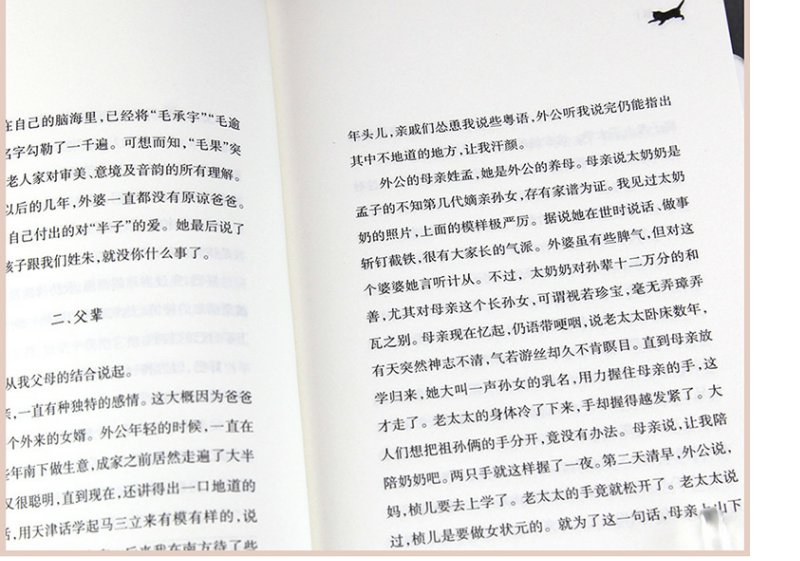 在自己的脑海里，已经将“毛承宇”“毛逾
名字勾勒了一千遍。可想而知，“毛果”突
老人家对审美、意境及音韵的所有理解。
以后的几年，外婆一直都没有原谅爸爸。
自己付出的对“半子”的爱。她最后说了
孩子跟我们姓朱，就没你什么事了。
二.父辈
从我父母的结合说起。
亲，一直有种独特的感情。这大概因为爸爸
个外来的女婿。外公年轻的时候，一直在
些年南下做生意，成家之前居然走遍了大半
又很聪明，直到现在，还讲得出一口地道的
话，用天津话学起马三立来有模有样的，说
后来我在南方待了些
年头儿，亲戚们怂恿我说些粤语，外公听我说完仍能指出
其中不地道的地方，让我汗颜。
外公的母亲姓孟，她是外公的养母。母亲说太奶奶是
孟子的不知第几代嫡亲孙女，存有家谱为证。我见过太奶
奶的照片，上面的模样极严厉。据说她在世时说话、做事
斩钉截铁，很有大家长的气派。外婆虽有些脾气，但对这
个婆婆她言听计从。不过，太奶奶对孙辈十二万分的和
善，尤其对母亲这个长孙女，可谓视若珍宝，毫无弄璋弄
瓦之别。母亲现在忆起，仍语带哽咽，说老太太卧床数年，
有天突然神志不清，气若游丝却久不肯瞑目。直到母亲放
学归来，她大叫一声孙女的乳名，用力握住母亲的手，这
才走了。老太太的身体冷了下来，手却握得越发紧了。大
人们想把祖孙俩的手分开，竟没有办法。母亲说，让我陪
陪奶奶吧。两只手就这样握了一夜。第二天清早，外公说，
妈，桢儿要去上学了。老太太的手竟就松开了。老太太说
过，桢儿是要做女状元的。就为了这一句话，母亲上山下